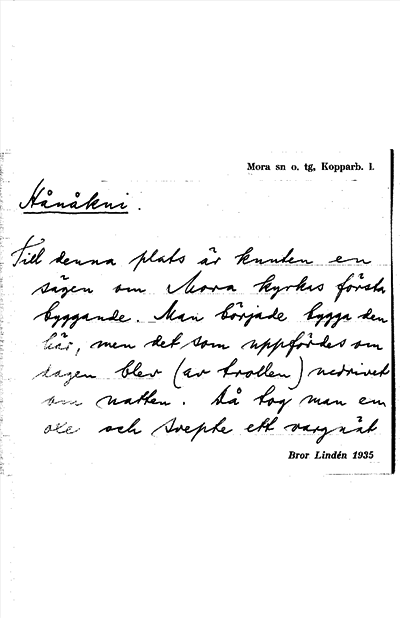 Mora sn o. tg, Kopparb. l.
Hånåkni.
Till denna plats är knuten en
sägen om Mora kyrkas första
byggande. Man började bygga den
här, men det som uppfördes om
dagen blev (av trollen) nedrivet
om natten. Då tog man en
oxe och svepte ett vargnät
Bror Lindén 1935